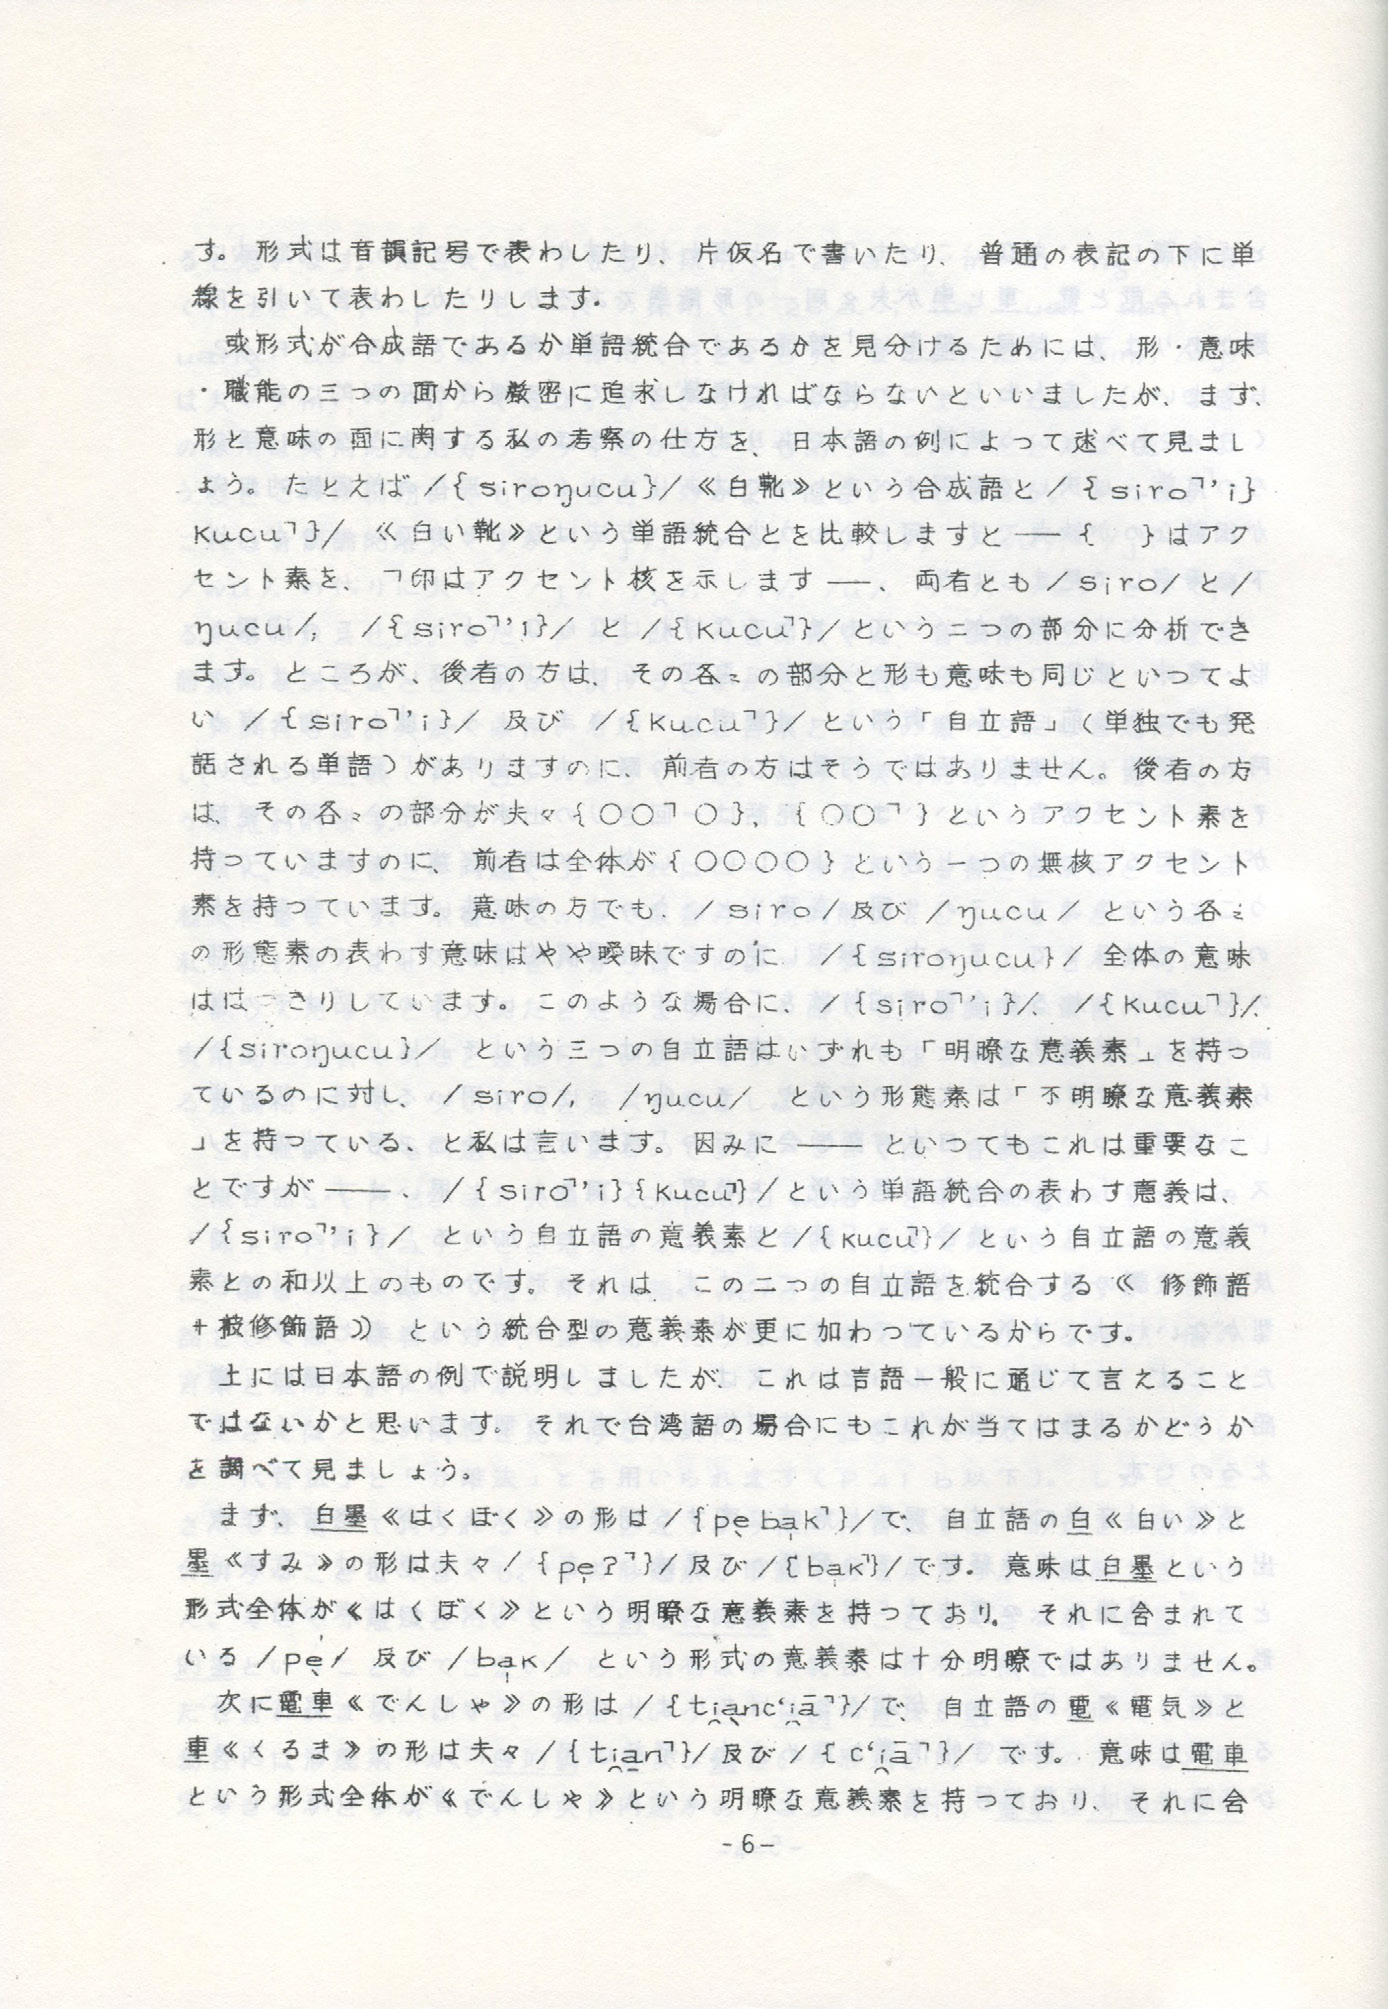 す。形式は音韻記号で表わしたり、片仮名で書いたり、普通の表記の下に単
線を引いて表わしたりします。
或形式が合成語であるか単語統合であるかを見分けるためには、形・意味
・職能の三つの面から厳密に追求しなければならないといいましたが、まず、
形と意味の面に関する私の考察の仕方を、日本語の例によって述べて見まし
ょう。たとえば/{siroŋucu}/《白靴》という合成語と/{siro⌝'i}
{kucu⌝}/《白い靴》という単語統合とを比較しますと――{　}はアク
セント素を、⌝印はアクセント核を示します――、両者とも/siro/と/
ŋucu/, /{siro⌝'i}/ と /{kucu⌝}/という二つの部分に分析でき
ます。ところが、後者の方は、その各〻の部分と形も意味も同じといつてよ
い /{siro⌝'i}/ 及び /{kucu⌝}/という「自立語」(単独でも発
話される単語)がありますのに、前者の方はそうではありません。後者の方
は、その各〻の部分が夫々{○○⌝○}, {○○⌝}というアクセント素を
持っていますのに、前者は全体が{○○○○}という一つの無核アクセント
素を持っています。意味の方でも、/siro/及び /ŋucu/ という各〻
の形態素の表わす意味はやや曖昧ですのに、/{siroŋucu}/ 全体の意味
ははっきりしています。このような場合に、/{siro⌝'i}/、/{kucu⌝}/、
/{siroŋucu}/ という三つの自立語はいずれも「明瞭な意義素」を持っ
ているのに対し、/siro/, /ŋucu/ という形態素は「不明瞭な意義素
」を持っている、と私は言います。因みに――といつてもこれは重要なこ
とですが――、/{siro⌝'i}{kucu⌝}/という単語統合の表わす意義は、
/{siro⌝'i}/ という自立語の意義素と/{kucu⌝}/という自立語の意義
素との和以上のものです。それは、この二つの自立語を統合する《修飾語
+被修飾語》という統合型の意義素が更に加わっているからです。
上には日本語の例で説明しましたが、これは言語一般に通じて言えること
ではないかと思います。それで台湾語の場合にもこれが当てはまるかどうか
を調べて見ましょう。
まず、白墨《はくぼく》の形は/{pe̩ba̩k⌝}/で、自立語の白《白い》と
墨《すみ》の形は夫々/{pe̩ʔ⌝}/及び/{ba̩k⌝}/です。意味は白墨という
形式全体が《はくぼく》という明瞭な意義素を持つており、それに含まれて
いる/pe̩/ 及び /ba̩k/ という形式の意義素は十分明瞭ではありません。
次に電車《でんしゃ》の形は/{ti̯a̠nc‘i̯ā⌝}/で、自立語の電《電気》と
車《くるま》の形は夫々/{ti̯a̠n⌝}/及び/{c‘i̯ā⌝}/ です。意味は電車
という形式全体が《でんしゃ》という明瞭な意義素を持つており、それに含
-6-